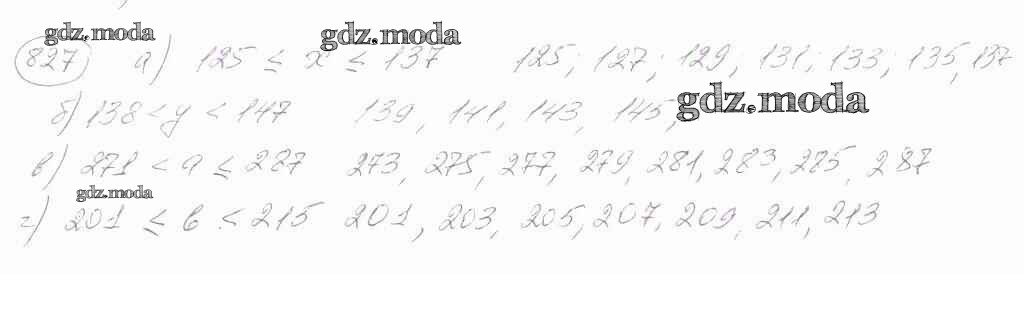 gdz.moda gdz.moda
827 а) 125 ≤ x ≤ 137 125; 127; 129, 131; 133; 135, 137
gdz.moda
б) 138 < y < 147 139, 141, 143, 145,
в) 271 < a ≤ 287 273, 275, 277, 279, 281, 283, 285, 287
gdz.moda
г) 201 ≤ b < 215 201, 203, 205, 207, 209, 211, 213